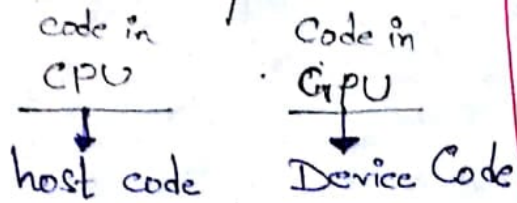 code in
CPU
host code
Code in
GPU
Device Code